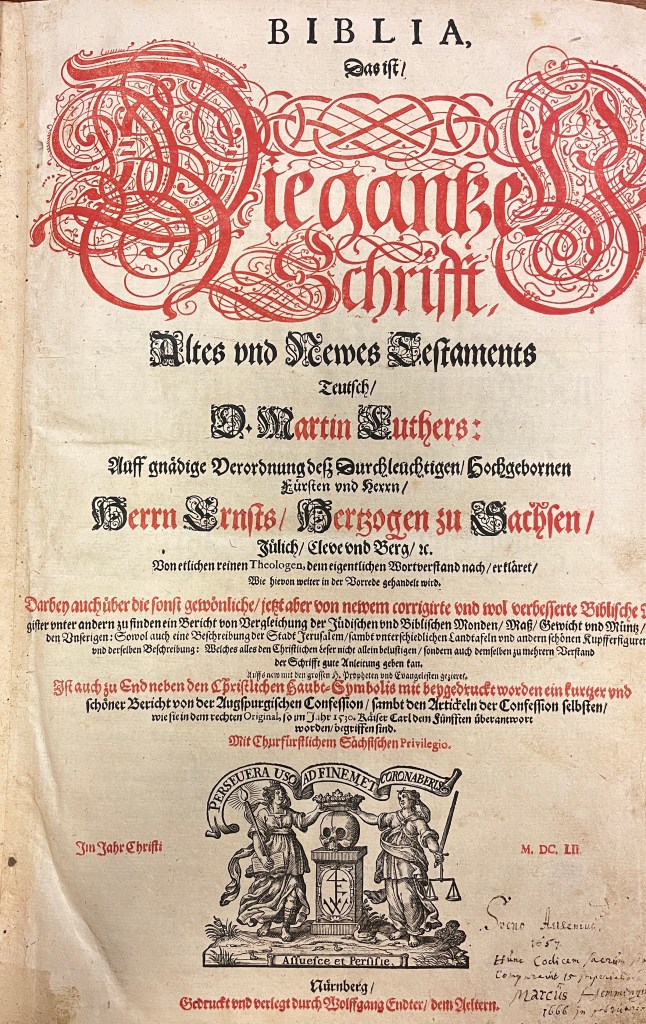 BIBLIA,
Das ist/
Die gantze H.
Schrifft,
Altes vnd Newes Testaments
Teutsch/
D. Martin Luthers:
Auff gnädige Verordnung deß Durchleuchtigen/ Hochgebornen
Fürsten vnd Herrn/
Herrn Ernsts/ Hertzogen zu Sachsen/
Jülich/ Cleve vnd Berg/ ꝛc.
Von etlichen reinen Theologen, dem eigentlichen Wortverstand nach/ erkläret/
Wie hievon weiter in der Vorrede gehandelt wird.
Darbey auch über die sonst gewönliche/ jetzt aber von newem corrigirte vnd wol verbesserte Biblische
gister vnter andern zu finden ein Bericht von Vergleichung der Jüdischen vnd Biblischen Monden/ Maß/ Gewicht vnd Müntz/
den Unserigen: Sowol auch eine Beschreibung der Stadt Jerusalem/ sambt vnterschiedlichen Landtafeln vnd andern schönen Kupfferfiguren
vnd derselben Beschreibung: Welches alles den Christlichen Leser nicht allein belustigen/ sondern auch demselben zu mehrern Verstand
der Schrifft gute Anleitung geben kan.
Auffs new mit den grossen H. Propheten vnd Evangelisten gezieret.
Ist auch zu End neben den Christlichen Haubt-Symbolis mit beygedruckt worden ein kurtzer vnd
schöner Bericht von der Augspurgischen Confession/ sambt den Artickeln der Confession selbsten/
wie sie in dem rechten Original, so im Jahr 1530. Käiser Carl dem Fünfften überantwort
worden/ begriffen sind.
Mit Churfürstlichem Sächsischen Privilegio.
PERSEVERA USQ AD FINEM ET CORONABERIS
Im Jahr Christi
M. DC. LII.
Assuesce et Persiste.
Nürnberg/
Gedruckt vnd verlegt durch Wolffgang Endter/ dem Aeltern.
Sveno
1657.
Hunc Codicem sacrum
Comparavit 15
Marcus Hemming
1666 in